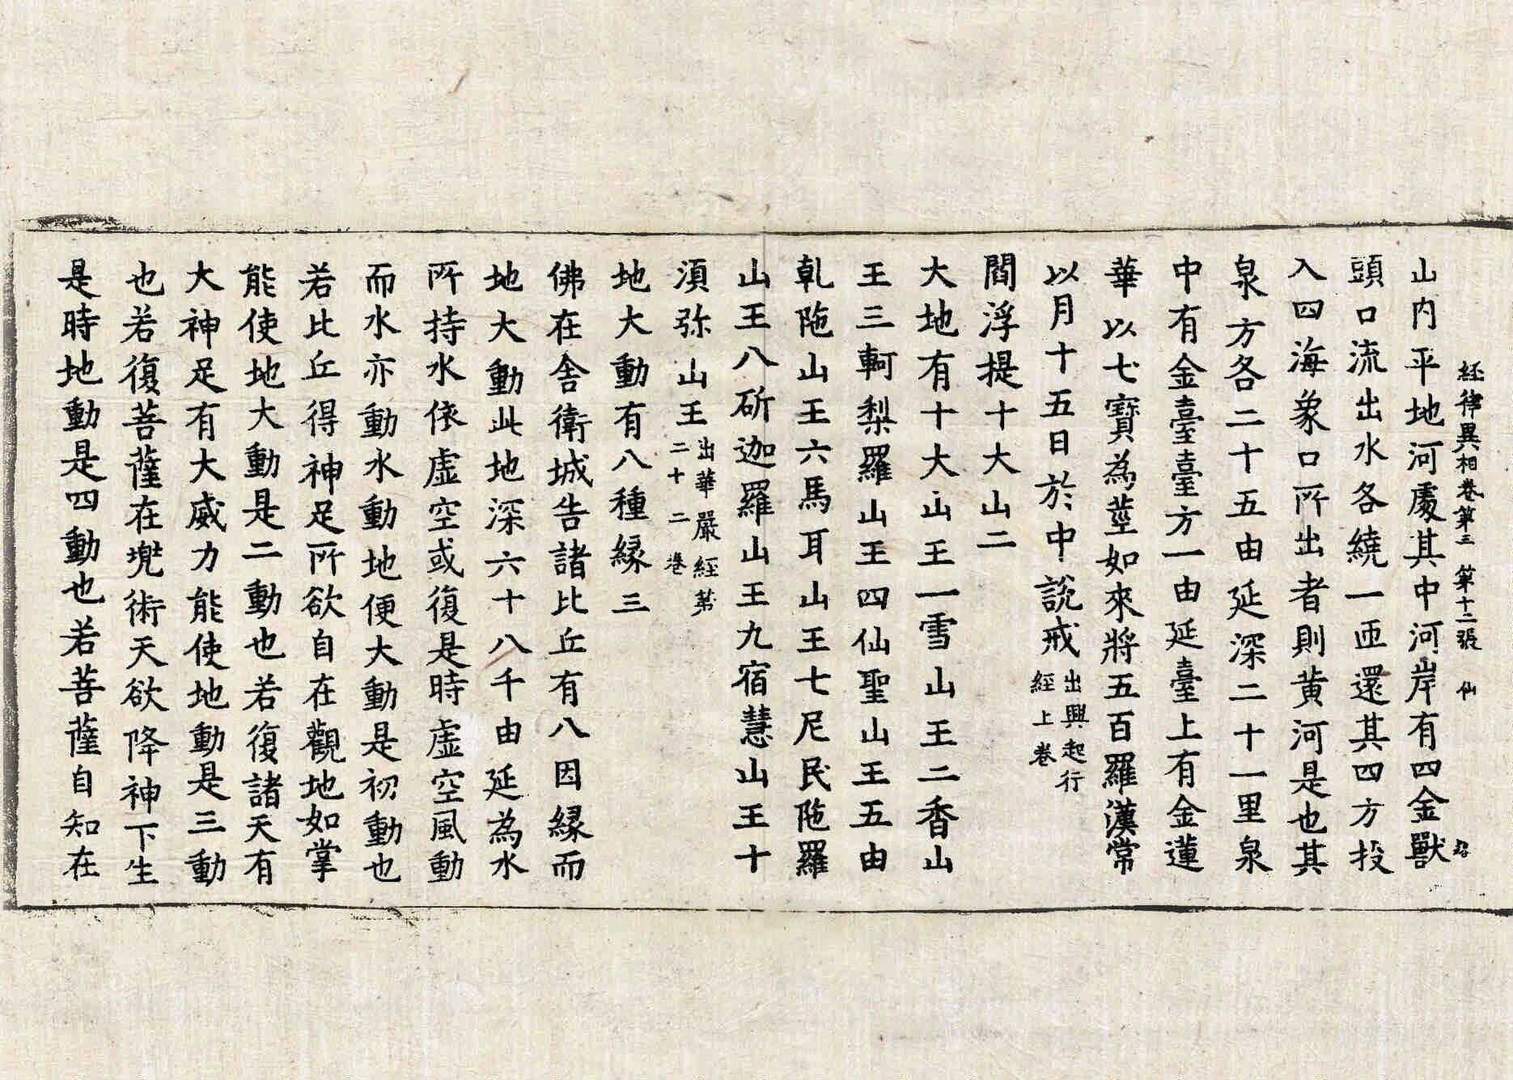 經律異相卷第三 第十二張 仙
山內平地河處其中河岸有四金獸
頭口流出水各繞一匝還其四方投
入四海象口所出者則黃河是也其
泉方各二十五由延深二十一里泉
中有金臺臺方一由延臺上有金蓮
華以七寶為莖如來將五百羅漢常
以月十五日於中說戒出興起行
經上卷
閻浮提十大山二
大地有十大山王一雪山王二香山
王三軻梨羅山王四仙聖山王五由
乹陁山王六馬耳山王七尼民陁羅
山王八斫迦羅山王九宿慧山王十
須弥山王出華嚴經第
二十二卷
地大動有八種緣三
佛在舍衛城告諸比丘有八因緣而
地大動此地深六十八千由延為水
所持水依虛空或復是時虛空風動
而水亦動水動地便大動是初動也
若比丘得神足所欲自在觀地如掌
能使地大動是二動也若復諸天有
大神足有大威力能使地動是三動
也若復菩薩在兜術天欲降神下生
是時地動是四動也若菩薩自知在